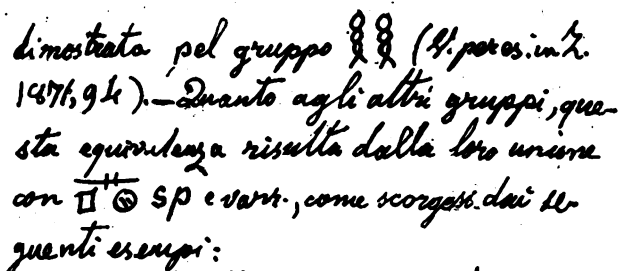 dimostrata pel gruppo 𓎛𓎛 (V. per es. in Z.
1871, 94). — Quanto agli altri gruppi, que-
sta equivalenza risulta dalla loro unione
con 𓊪 𓐍 sp e varr., come scorgesi dai se-
guenti esempi: